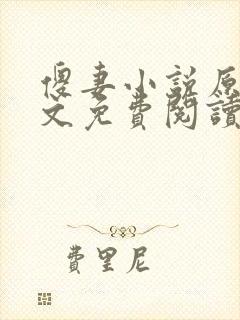 傻妻小説原
文免費閱讀
費里尼